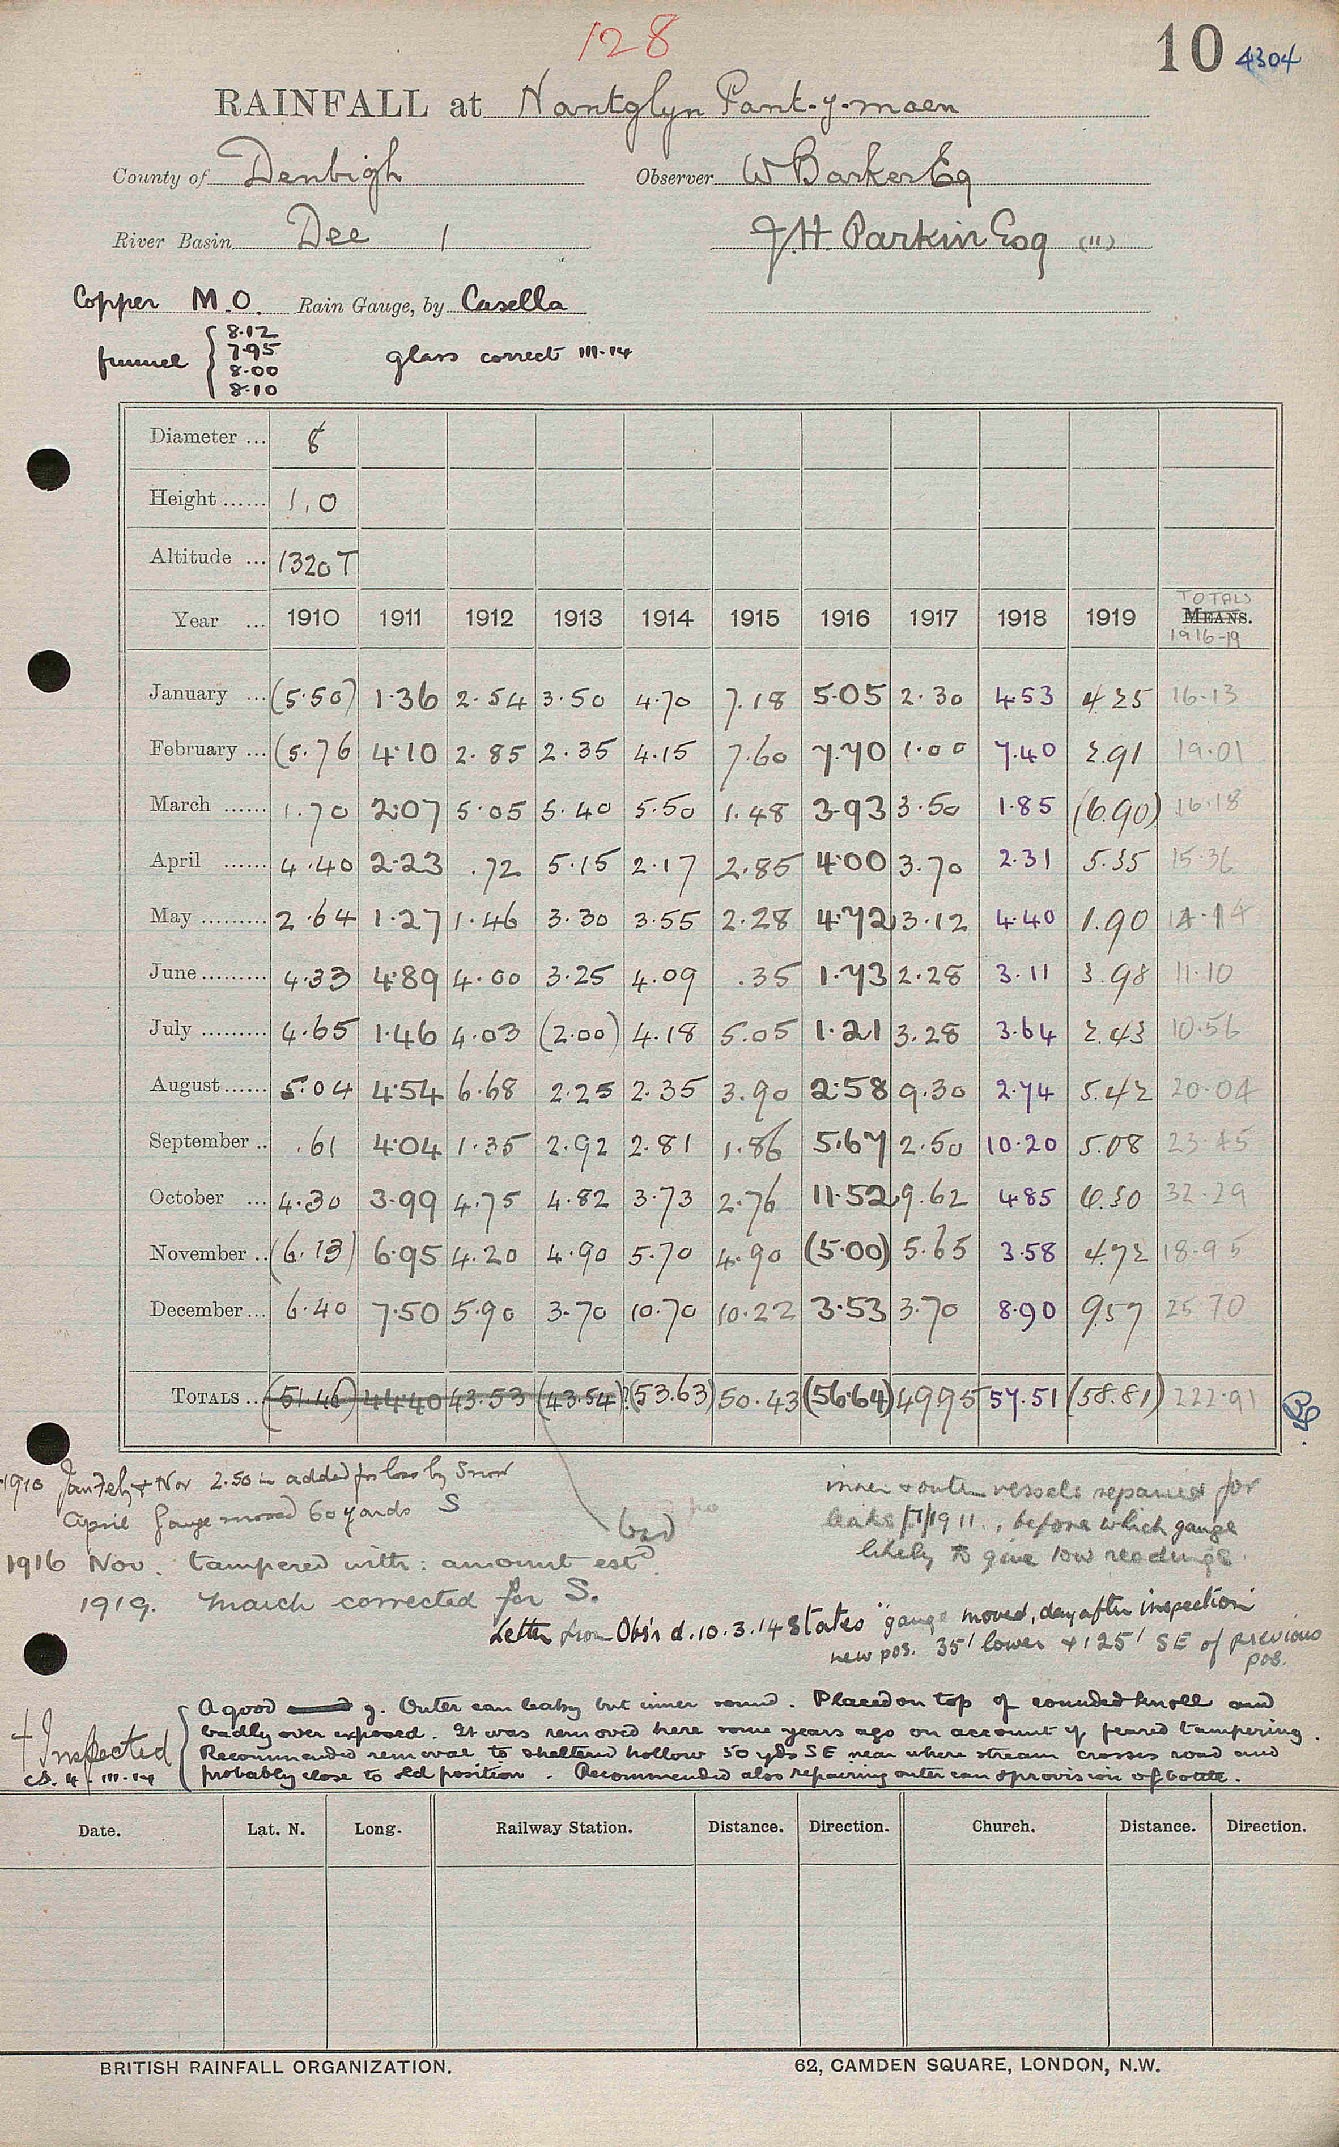 128
10 4304
RAINFALL at Nantglyn Pant-y-maen
County of Denbigh Observer W Barker Esq
River Basin Dee 1 J.H. Parkin Esq (11)
Copper M.O. Rain Gauge, by Casella
funnel { 8.12 7.95 8.00 8.10 glass correct III.14
Diameter ... 8
Height ...... 1.0
Altitude ... 1320 T
Year ... 1910 1911 1912 1913 1914 1915 1916 1917 1918 1919 TOTALS MEANS. 1916-19
January ... (5.50) 1.36 2.54 3.50 4.70 7.18 5.05 2.30 4.53 4.25 16.13
February ... (5.76 4.10 2.85 2.35 4.15 7.60 7.70 1.00 7.40 2.91 19.01
March ...... 1.70 2.07 5.05 5.40 5.50 1.48 3.93 3.50 1.85 (6.90) 16.18
April ...... 4.40 2.23 .72 5.15 2.17 2.85 4.00 3.70 2.31 5.35 15.36
May ......... 2.64 1.27 1.46 3.30 3.55 2.28 4.72 3.12 4.40 1.90 14.14
June ......... 4.33 4.89 4.00 3.25 4.09 .35 1.73 2.28 3.11 3.98 11.10
July ......... 4.65 1.46 4.03 (2.00) 4.18 5.05 1.21 3.28 3.64 2.43 10.56
August ...... 5.04 4.54 6.68 2.25 2.35 3.90 2.58 9.30 2.74 5.42 20.04
September .. .61 4.04 1.35 2.92 2.81 1.86 5.67 2.50 10.20 5.08 23.45
October ... 4.30 3.99 4.75 4.82 3.73 2.76 11.52 9.62 4.85 6.30 32.29
November .. (6.13) 6.95 4.20 4.90 5.70 4.90 (5.00) 5.65 3.58 4.72 18.95
December ... 6.40 7.50 5.90 3.70 10.70 10.22 3.53 3.70 8.90 9.57 25.70
TOTALS .. (51.46) 44.40 43.53 (43.54)? (53.63) 50.43 (56.64) 49.95 57.51 (58.81) 222.91
1910 Jan Feb & Nov 2.50 in added for loss by Snow
April Gauge moved 60 yards S
bad
1916 Nov. tampered with: amount estd.
1919. March corrected for S.
inner & outer vessels repaired for
leaks 1911, before which gauge
likely to give low readings.
Letter from Obsr d. 10.3.14 states "gauge moved, day after inspection
new pos. 35' lower & 125' SE of previous
pos.
+ Inspected
4.III.14
A good g. Outer can leaky but inner sound. Placed on top of rounded knoll and
badly over exposed. It was removed here some years ago on account of feared tampering.
Recommended removal to sheltered hollow 50 yds SE near where stream crosses road and
probably close to old position. Recommended also repairing outer can & provision of bottle.
Date. Lat. N. Long. Railway Station. Distance. Direction. Church. Distance. Direction.
BRITISH RAINFALL ORGANIZATION. 62, CAMDEN SQUARE, LONDON, N.W.